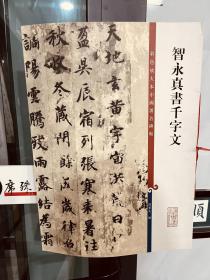 彩色放大本中國著名碑帖
智永真書千字文
天地玄黃宇宙洪荒日月
盈昃辰宿列張寒來暑往
秋收冬藏閏餘成歲律呂
調陽雲騰致雨露結為霜
席珠